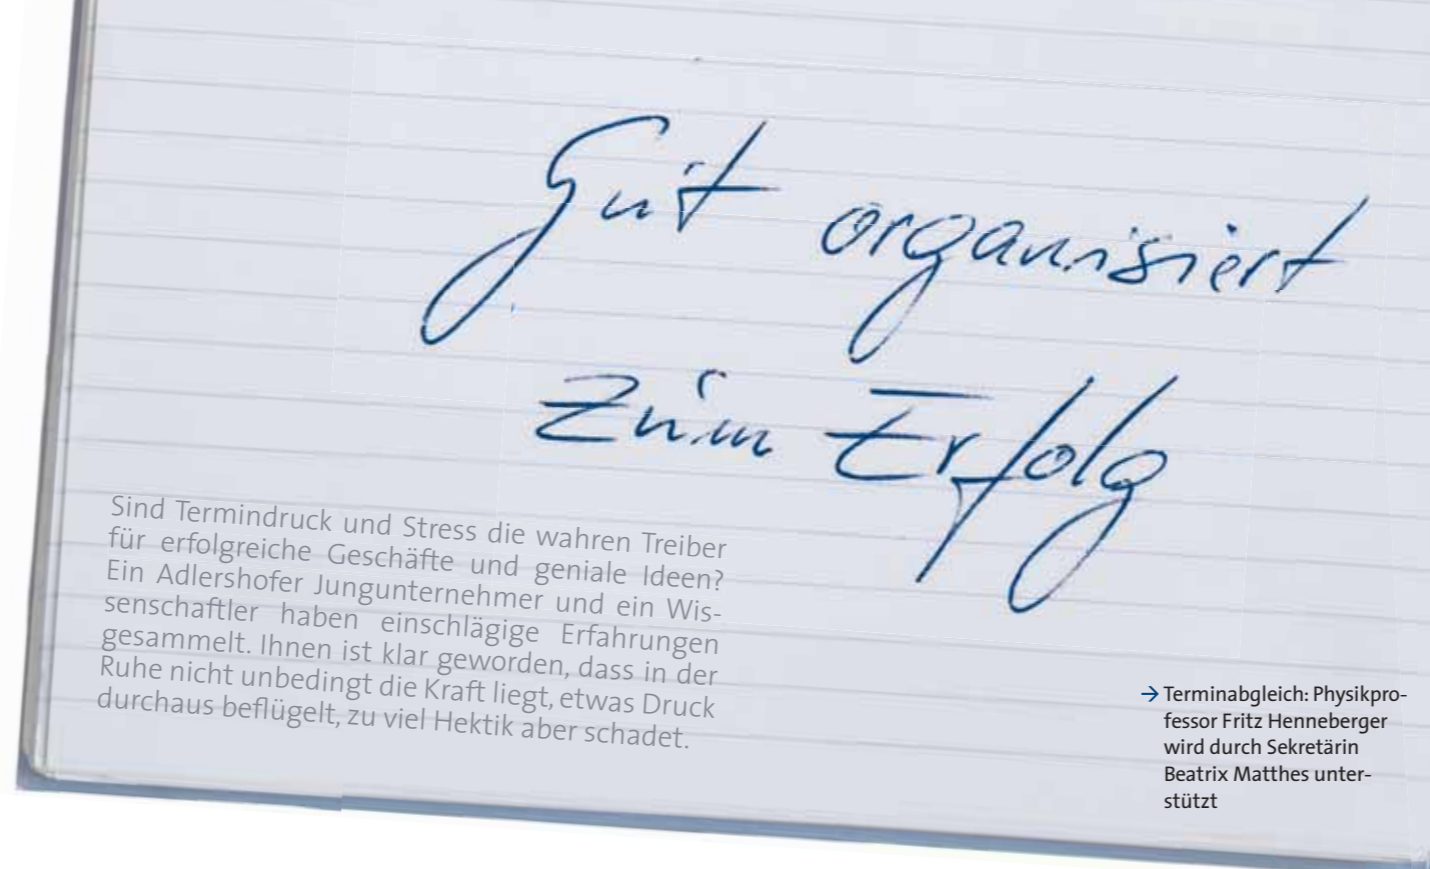 Gut organisiert
zum Erfolg
Sind Termindruck und Stress die wahren Treiber
für erfolgreiche Geschäfte und geniale Ideen?
Ein Adlershofer Jungunternehmer und ein Wis-
senschaftler haben einschlägige Erfahrungen
gesammelt. Ihnen ist klar geworden, dass in der
Ruhe nicht unbedingt die Kraft liegt, etwas Druck
durchaus beflügelt, zu viel Hektik aber schadet.
→ Terminabgleich: Physikpro-
fessor Fritz Henneberger
wird durch Sekretärin
Beatrix Matthes unter-
stützt